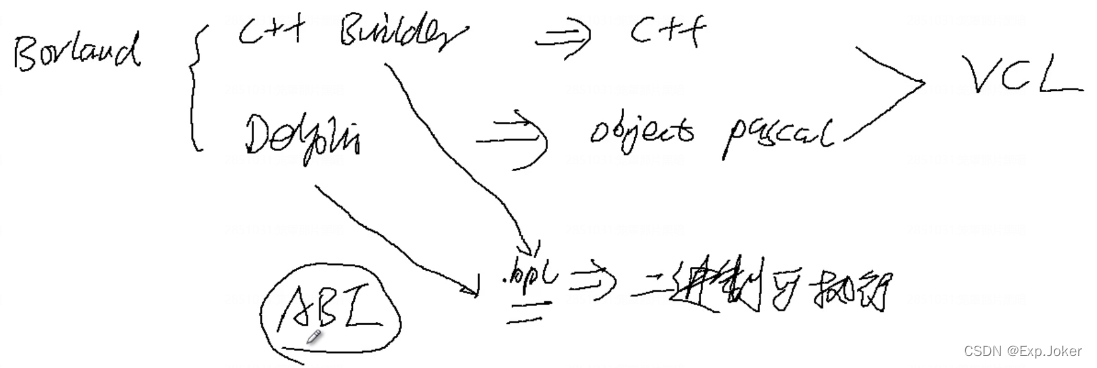 Borland { C++ Builder ⇒ C++
VCL
Delphi ⇒ objects pascal
.bpl ⇒ 二进制可执行
ABI
CSDN @Exp.Joker